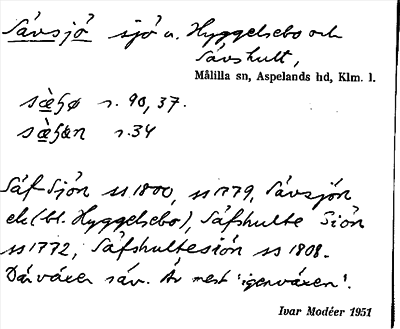 Sävsjö sjö u. Hyggelsebo och
Sävshult,
Målilla sn, Aspelands hd, Klm. l.
s. 90, 37.
s. 34
Säf-Sjön ss 1800, ss 1779, Sävsjön
ek (bl. Hyggelsebo), Säfshulte Siön
ss 1772, Säfshultesiön ss 1808.
Där växer säv. Är mest 'igenväxen'.
Ivar Modéer 1951